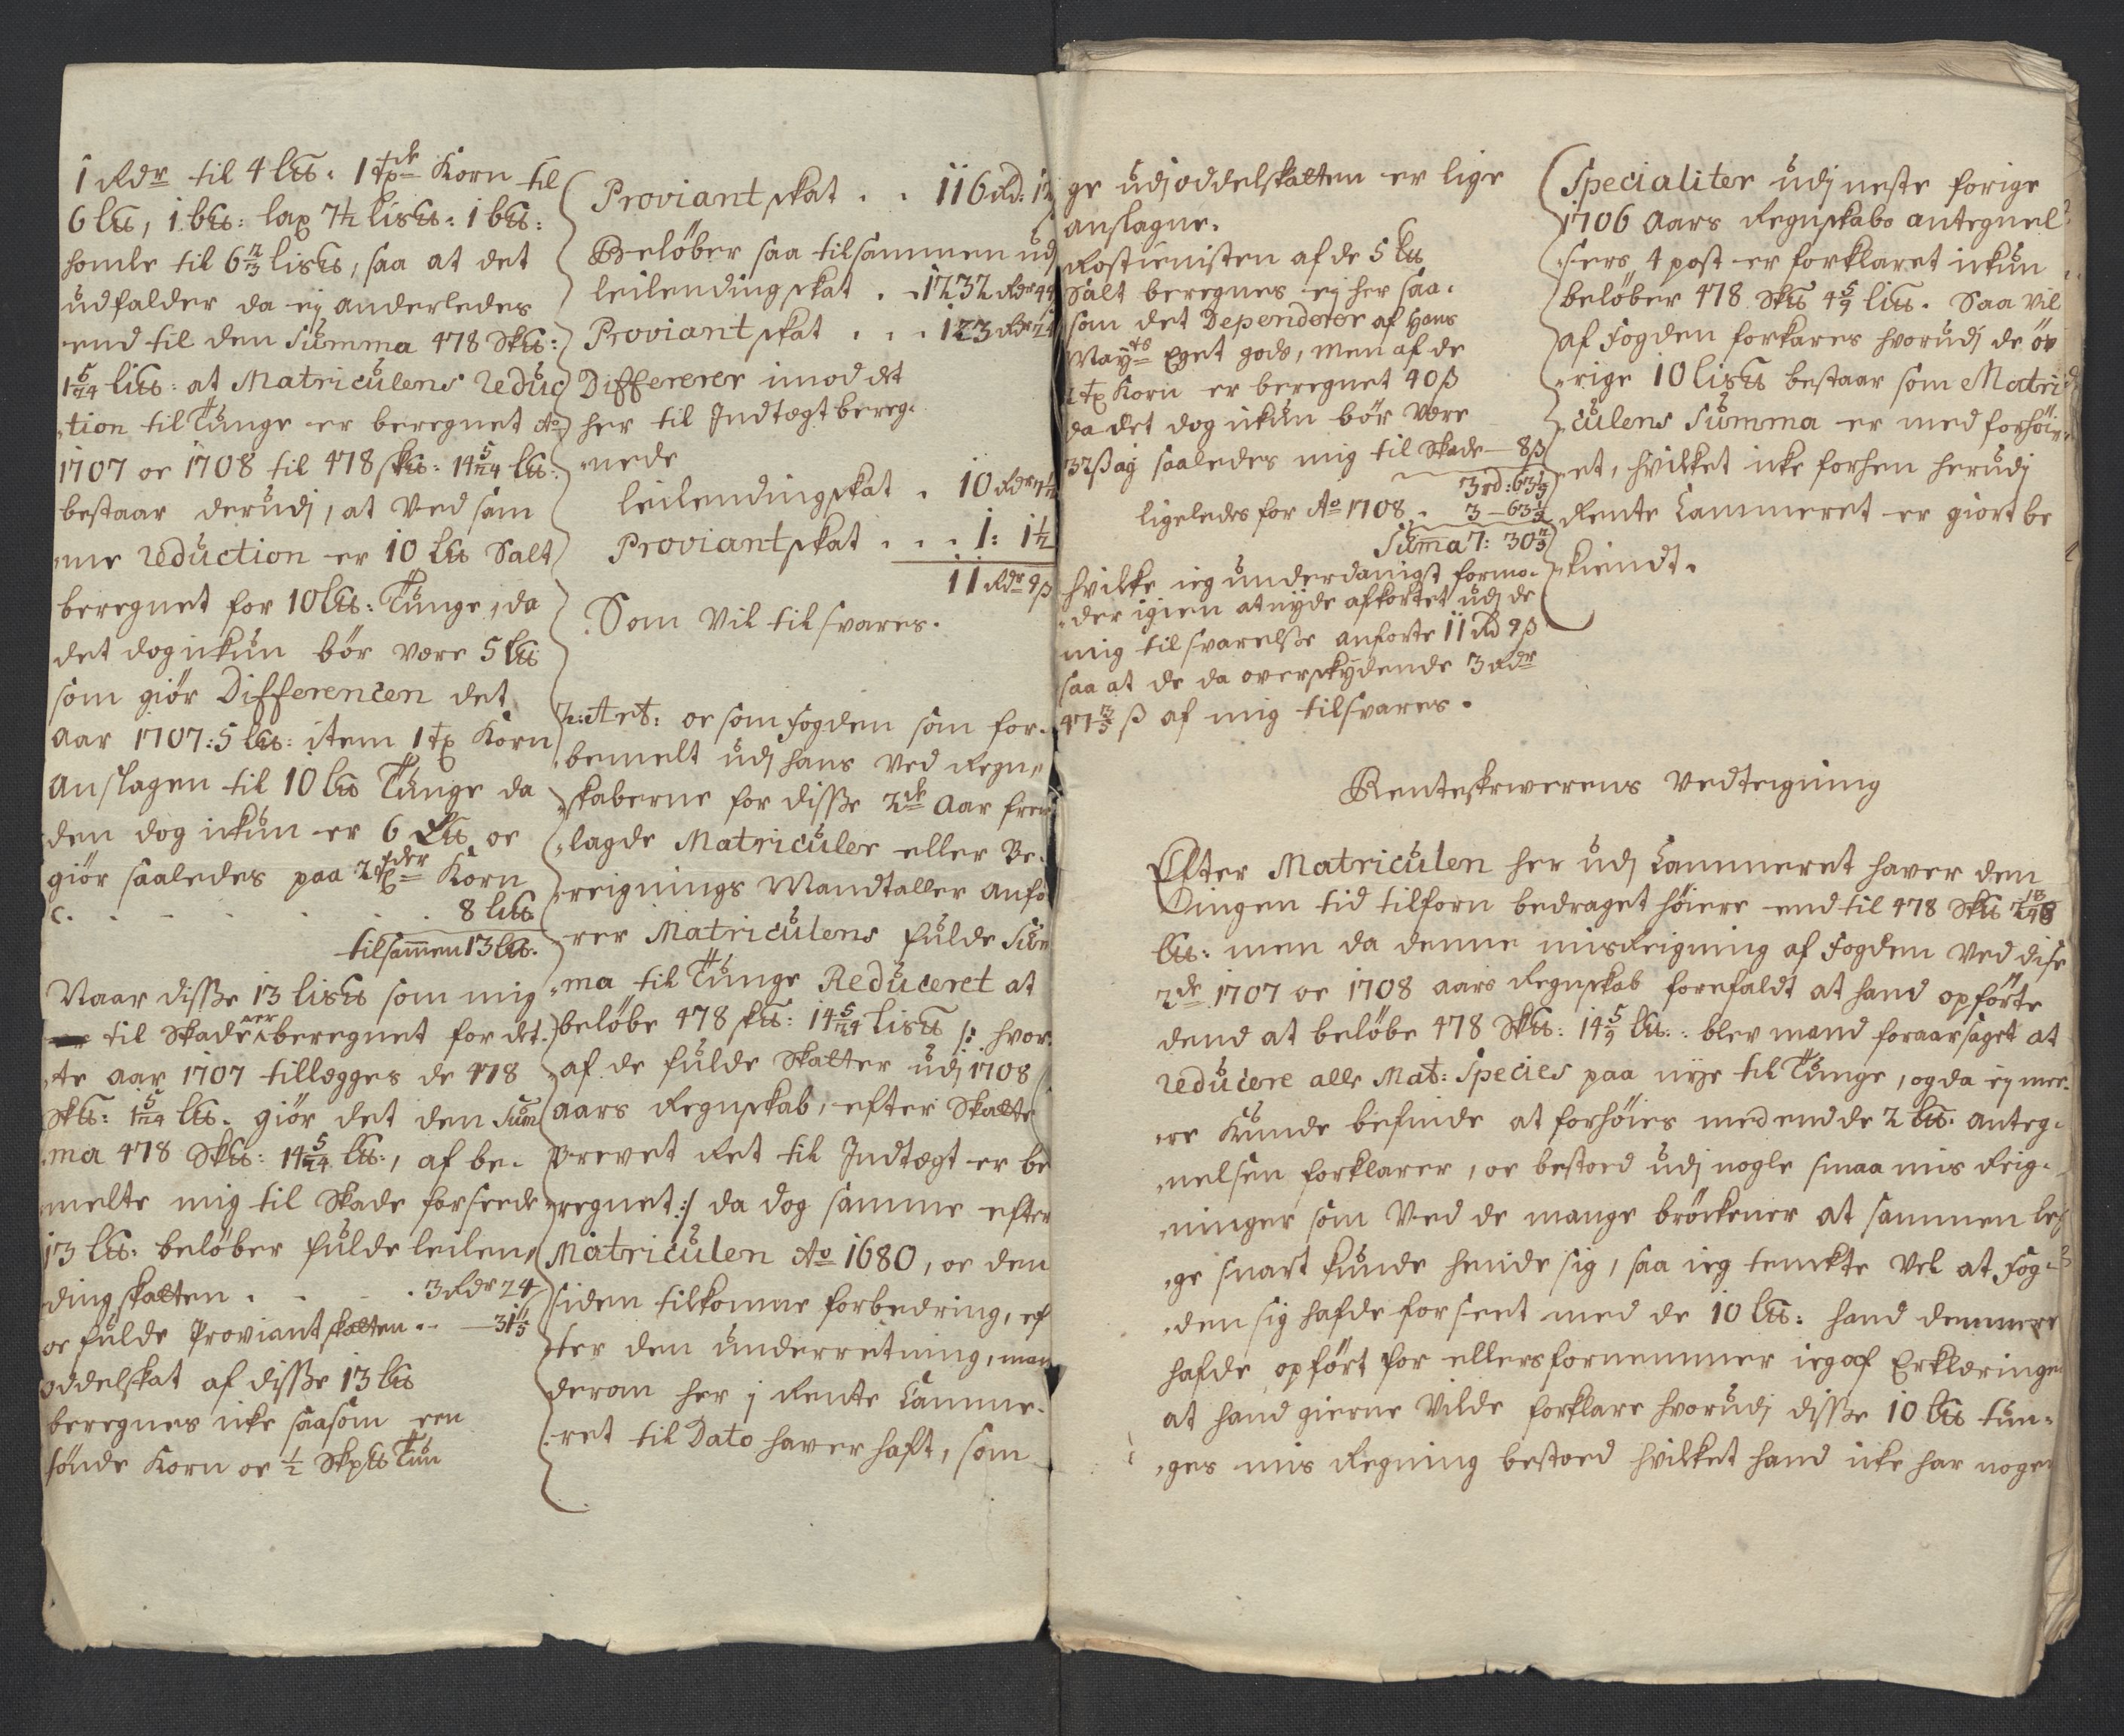 1 Rdr til 4 l℔: 1 tde Korn til
6 l℔, 1 b℔: lax 7½ lis℔: 1 b℔:
homle til 6⅔ lis℔, saa at det
udfalder da ej anderledes
end til den Summa 478 Sk℔:
1 5/24 lis℔: at Matriculens reduc
tion til Tunge er beregnet Ao
1707 oc 1708 til 478 sk℔: 14 5/24 l℔:
bestaar derudj, at Ved sam
me reduction er 10 l℔ Salt
beregnet for 10 l℔: Tunge, da
det dog ickun bör være 5 l℔
som giör Differencen det
aar 1707: 5 l℔: item 1 tp Korn
anslagen til 10 l℔ Tunge da
den dog ickun er 6 l℔ oc
giör saaledes paa 2 tder Korn
8 li℔
tilsammen 13 l℔.
Naar disse 13 lis℔ som mig
til Skade er beregnet for det
te aar 1707 tillegges de 478
Sk℔: 1 5/24 l℔. giör det den Sum
ma 478 Sk℔: 14 5/24 l℔:, af be-
melte mig til Skade forseede
13 l℔: beløber fulde leilen
ding skatten . . . 3 Rdr 24
oc fulde Proviant skatten . . — 31 1/5
oddelskat af disse 13 l℔
beregnes icke saasom een
tönde Korn oc ½ Skp℔ Tun
Proviant skat . . 116 Rd: 12
Beløber saa tilsammen udj
leilending skat . . 1232 Rdr 44
Proviant skat . . . 123 Rdr
Differerer imod det
her til Indtægt bereg-
nede
leilending skat . 10 Rdr 7½
Proviant skat . . . 1: 1½
11 Rdr 9 ß
Som Vil tilsvares.
2: Act: oc som Fogden som for-
bemelt udj hans Ved Regn
skaberne for disse 2de Aar frem
lagde Matriculer eller Be-
reignings Mandtaller anfö
rer Matriculens fulde Sum
ma til Tunge Reduceret at
beløbe 478 sk℔: 14 5/24 lis℔ /: hvor
af de fulde Skatter udj 1708
aars Regnskab, efter Skatte
brevet Ret til Indtægt er be
regnet :/ da dog samme efter
Matriculen Ao 1680, oc den
siden tilkomne forbedring, ef
ter den underretning, man
derom her i Rente Cammer-
ret til Dato haver haft, som
ge udj oddelskatten er lige
anslagne.
Rostienisten af de 5 l℔
Salt beregnes ej her saa-
som det Dependerer af Hans
Mayts Eget gods, men af de
2 tp Korn er beregnet 40 ß
da det dog ickun bör være
32 ß ag saaledes mig til Skade — 8 ß
3 rd: 63 1/5
ligeledes for Ao 1708 . 3 — 63 1/5
Suma 7: 30 2/5
hvilke ieg underdanigst formo-
der igien at nyde afkortet udj de
mig til svarelse anforte 11 Rd 9 ß
saa at de da overskydende 3 Rdr
47 3/5 ß af mig tilsvares.
Specialiter udj neste forige
1706 Aars Regnskabs antegnel
sers 4 post er forklaret ickun
beløber 478 Sk℔ 4 5/9 li℔. Saa Vil
af Fogden forkares hvorudj de öv
rige 10 lis℔ bestaar som Matri
culens Summa er med forhöi
et, hvilket icke forhen herudj
Rente Cammeret er giort be
kiendt.
Renteskriverens Vedteigning
Efter Matriculen her udj Cammeret haver den
ingen tid tilforn bedraget höiere end til 478 Sk℔
l℔: men da denne misreigning af Fogden Ved dise
2de 1707 oc 1708 aars Regnskab forefaldt at hand opförte
dend at beløbe 478 Sk℔: 14 5/9 l℔: blev mand foraarsaget at
reducere alle Mat: Species paa nye til Tunge, og da ej mee-
re Kunde befinde at forhöies med end de 2 l℔. anteg-
nelsen forklarer, oc bestoed udj nogle smaa mis Reig-
ninger som Ved de mange bröckener at sammen leg
ge snart kunde hende sig, saa ieg tenckte Vel at Fog-
den sig hafde forseet med de 10 l℔: hand demmere
hafde opfört for ellers fornemmer ieg af Erklæringen
at hand gierne Vilde forklare hvorudj disse 10 l℔ tun-
ges mis Regning bestoed hvilket hand icke har nogen